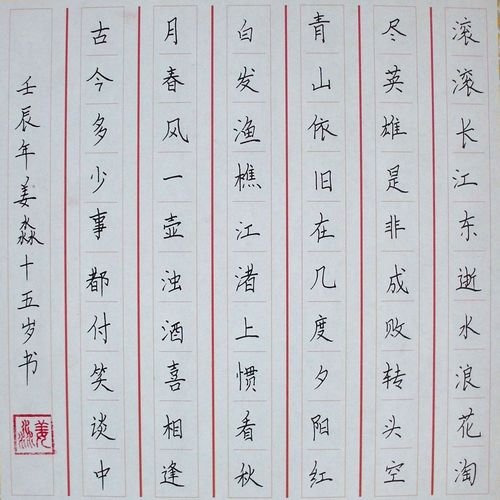 滚滚长江东逝水浪花淘
尽英雄是非成败转头空
青山依旧在几度夕阳红
白发渔樵江渚上惯看秋
月春风一壶浊酒喜相逢
古今多少事都付笑谈中
壬辰年姜淼十五岁书
姜淼